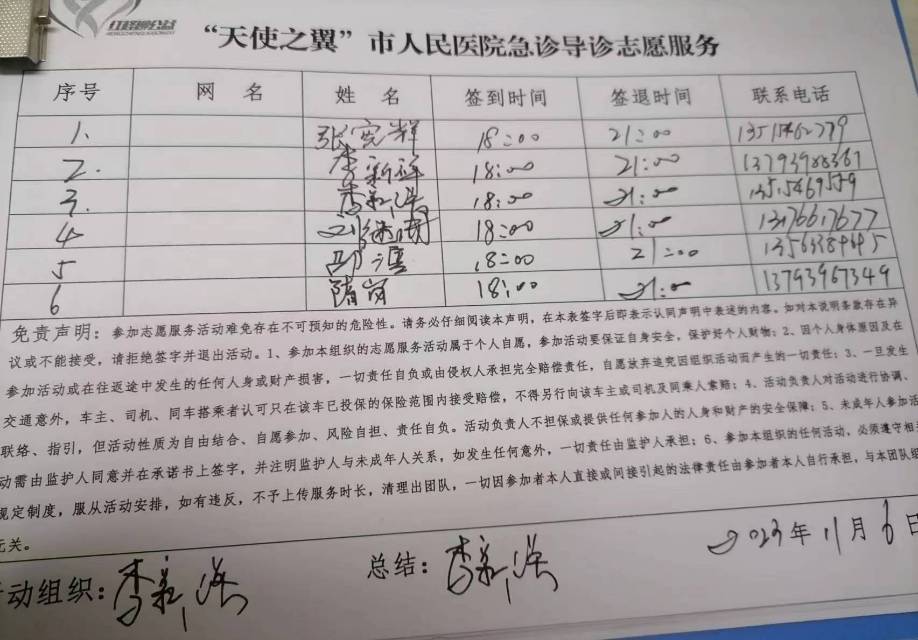 红丝带公益
“天使之翼”市人民医院急诊导诊志愿服务
序号 网 名 姓 名 签到时间 签退时间 联系电话
1. 18:00 21:00
2. 李新 18:00 21:00 13793988361
3. 18:00 21:00 13515469559
4 18:00 21:00 13176617677
5 18:00 21:00
6 隋岗 18:00 21:00 13793967349
免责声明：参加志愿服务活动难免存在不可预知的危险性。请务必仔细阅读本声明，在本表签字后即表示认同声明中表述的内容。如对本说明条款存在异
议或不能接受，请拒绝签字并退出活动。1、参加本组织的志愿服务活动属于个人自愿，参加活动要保证自身安全，保护好个人财物；2、因个人身体原因及在
参加活动或在往返途中发生的任何人身或财产损害，一切责任自负或由侵权人承担完全赔偿责任，自愿放弃追究因组织活动而产生的一切责任；3、一旦发生
交通意外，车主、司机、同车搭乘者认可只在该车已投保的保险范围内接受赔偿，不得另行向该车主或司机及同乘人索赔；4、活动负责人对活动进行协调、
联络、指引，但活动性质为自由结合、自愿参加、风险自担、责任自负。活动负责人不担保或提供任何参加人的人身和财产的安全保障；5、未成年人参加活
动需由监护人同意并在承诺书上签字，并注明监护人与未成年人关系，如发生任何意外，一切责任由监护人承担；6、参加本组织的任何活动，必须遵守相关
规定制度，服从活动安排，如有违反，不予上传服务时长，清理出团队，一切因参加者本人直接或间接引起的法律责任由参加者本人自行承担，与本团队组
无关。
活动组织： 总结： 2023年11月6日